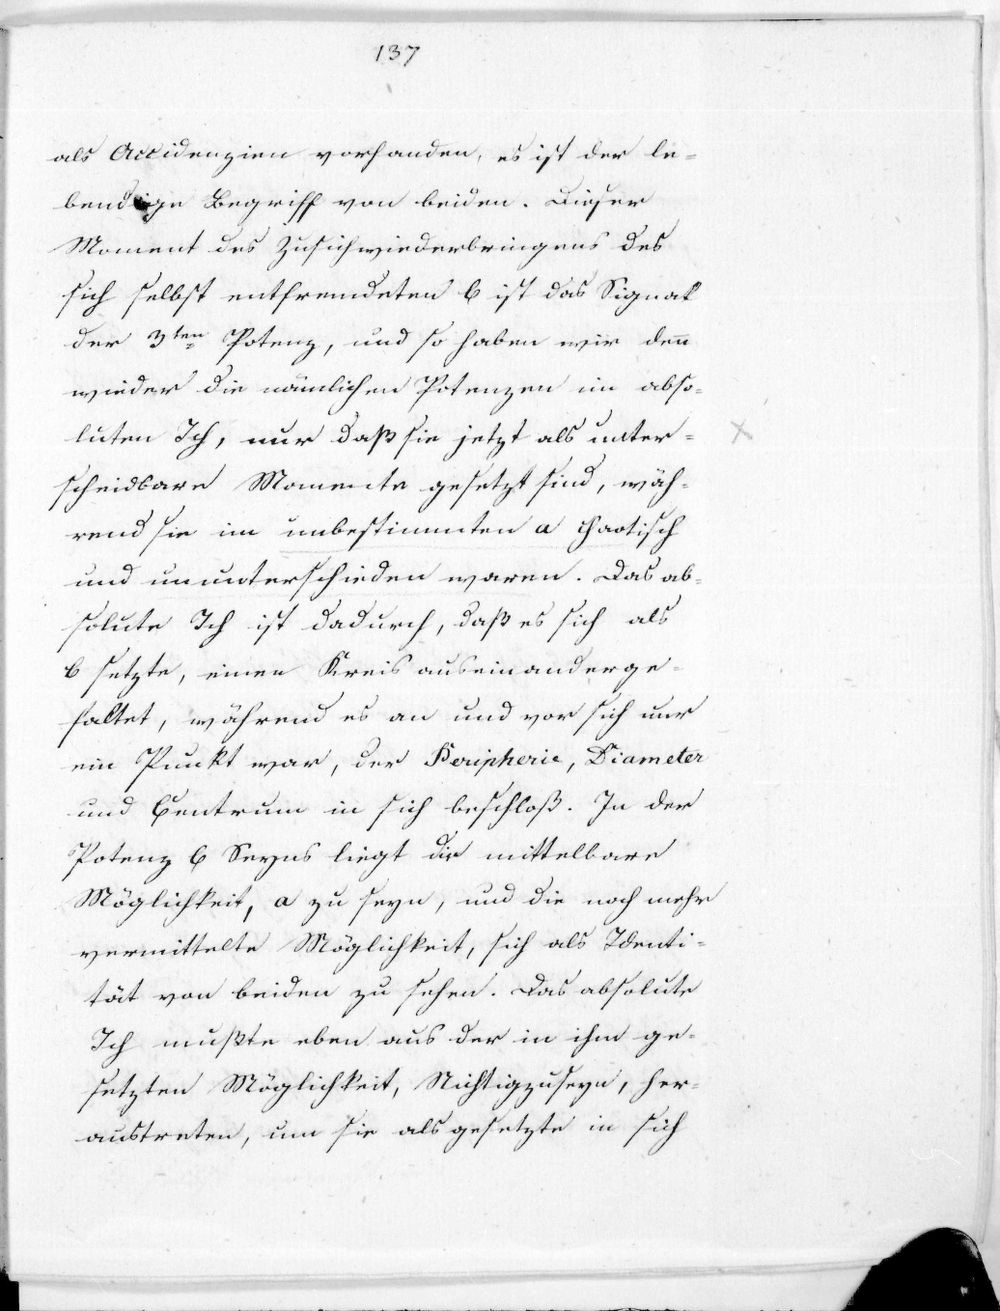 137
als Accidenzien vorhanden, es ist der le=
bendige Begriff von beiden. Dieser
Moment des Zusichwiederbringens des
sich selbst entfremdeten b ist das Signal
der 3ten Potenz, und so haben wir deñ
wieder die nämlichen Potenzen im abso=
luten Ich, nur daß sie jetzt als unter=
scheidbare Momente gesetzt sind, wäh=
rend sie im unbestimmten a chaotisch
und ununterschieden waren. Das ab=
solute Ich ist dadurch, daß es sich als
b setzte, einen Kreis auseinanderge=
faltet, während es an und vor sich nur
ein Punkt war, der Peripherie, Diameter
und Centrum in sich beschloß. In der
Potenz b Seyns liegt die mittelbare
Möglichkeit, a zu seyn, und die noch mehr
vermittelte Möglichkeit, sich als Identi=
tät von beiden zu sehen. Das absolute
Ich mußte eben aus der in ihm ge=
setzten Möglichkeit, Nichtigzuseyn, her=
austreten, um sie als gesetzte in sich